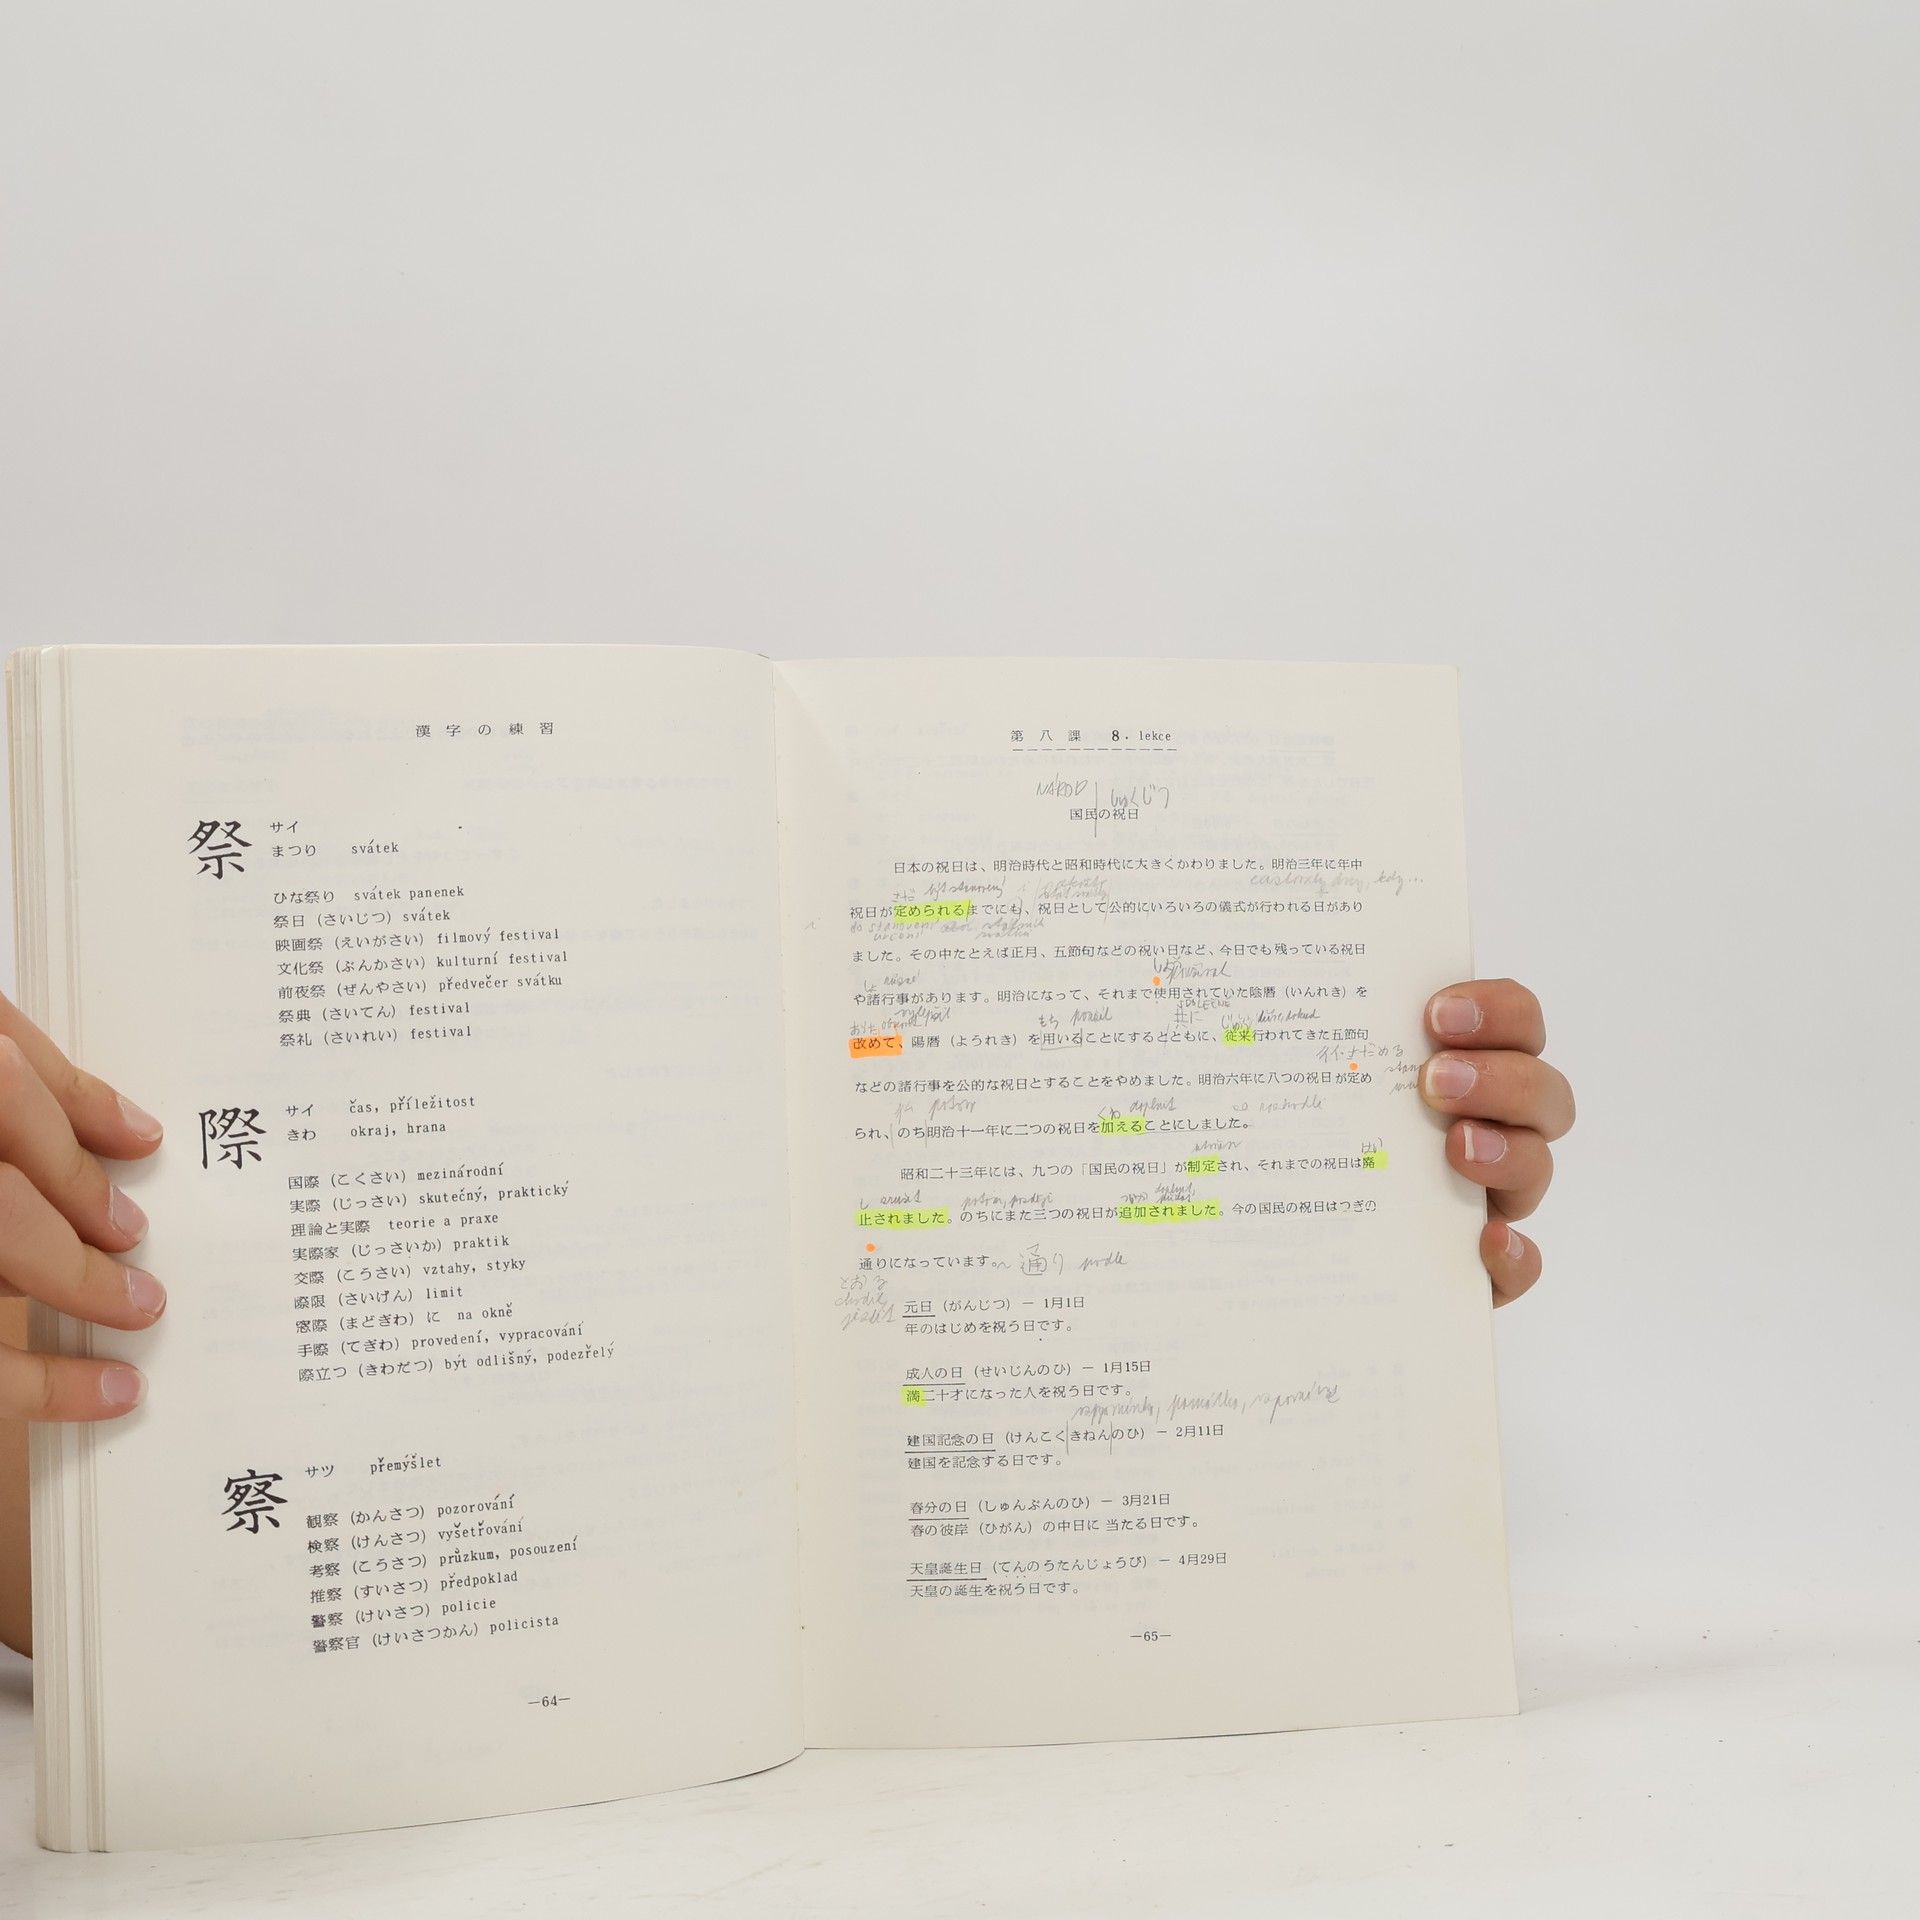 漢字の練習
祭
サイ
まつり svátek
ひな祭り svátek panenek
祭日 (さいじつ) svátek
映画祭 (えいがさい) filmový festival
文化祭 (ぶんかさい) kulturní festival
前夜祭 (ぜんやさい) předvečer svátku
祭典 (さいてん) festival
祭礼 (さいれい) festival
際
サイ čas, příležitost
きわ okraj, hrana
国際 (こくさい) mezinárodní
実際 (じっさい) skutečný, praktický
理論と実際 teorie a praxe
実際家 (じっさいか) praktik
交際 (こうさい) vztahy, styky
際限 (さいげん) limit
窓際 (まどぎわ) に na okně
手際 (てぎわ) provedení, vypracování
際立つ (きわだつ) být odlišný, podezřelý
察
サツ přemýšlet
観察 (かんさつ) pozorování
検察 (けんさつ) vyšetřování
考察 (こうさつ) průzkum, posouzení
推察 (すいさつ) předpoklad
警察 (けいさつ) policie
警察官 (けいさつかん) policista
—64—
第八課 8. lekce
NÁROD しゅくじつ
国民の祝日
日本の祝日は、明治時代と昭和時代に大きくかわりました。明治三年に年中
祝日が定められるまでにも、祝日として公的にいろいろの儀式が行われる日があり
ました。その中たとえば正月、五節句などの祝い日など、今日でも残っている祝日
や諸行事があります。明治になって、それまで使用されていた陰暦 (いんれき) を
改めて、陽暦 (ようれき) を用いることにするとともに、従来行われてきた五節句
などの諸行事を公的な祝日とすることをやめました。明治六年に八つの祝日が定め
られ、のち明治十一年に二つの祝日を加えることにしました。
昭和二十三年には、九つの「国民の祝日」が制定され、それまでの祝日は廃
止されました。のちにまた三つの祝日が追加されました。今の国民の祝日はつぎの
通りになっています。 通り podle
元日 (がんじつ) — 1月1日
年のはじめを祝う日です。
成人の日 (せいじんのひ) — 1月15日
満二十才になった人を祝う日です。
建国記念の日 (けんこくきねんのひ) — 2月11日
建国を記念する日です。
春分の日 (しゅんぶんのひ) — 3月21日
春の彼岸 (ひがん) の中日に当たる日です。
天皇誕生日 (てんのうたんじょうび) — 4月29日
天皇の誕生を祝う日です。
—65—